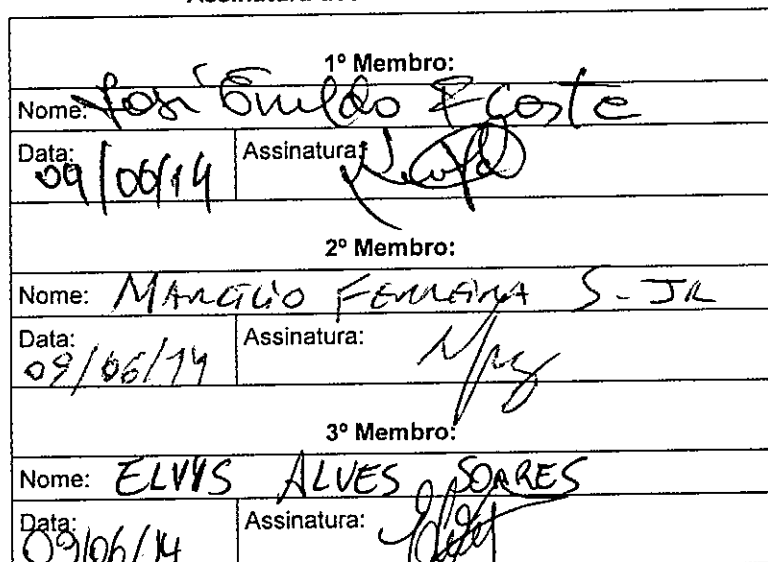 1º Membro:
Nome: José Enildo F Costa
Data: 09/06/14 Assinatura:
2º Membro:
Nome: MARCÍLIO FERREIRA S. JR
Data: 09/06/14 Assinatura:
3º Membro:
Nome: ELVYS ALVES SOARES
Data: 09/06/14 Assinatura: